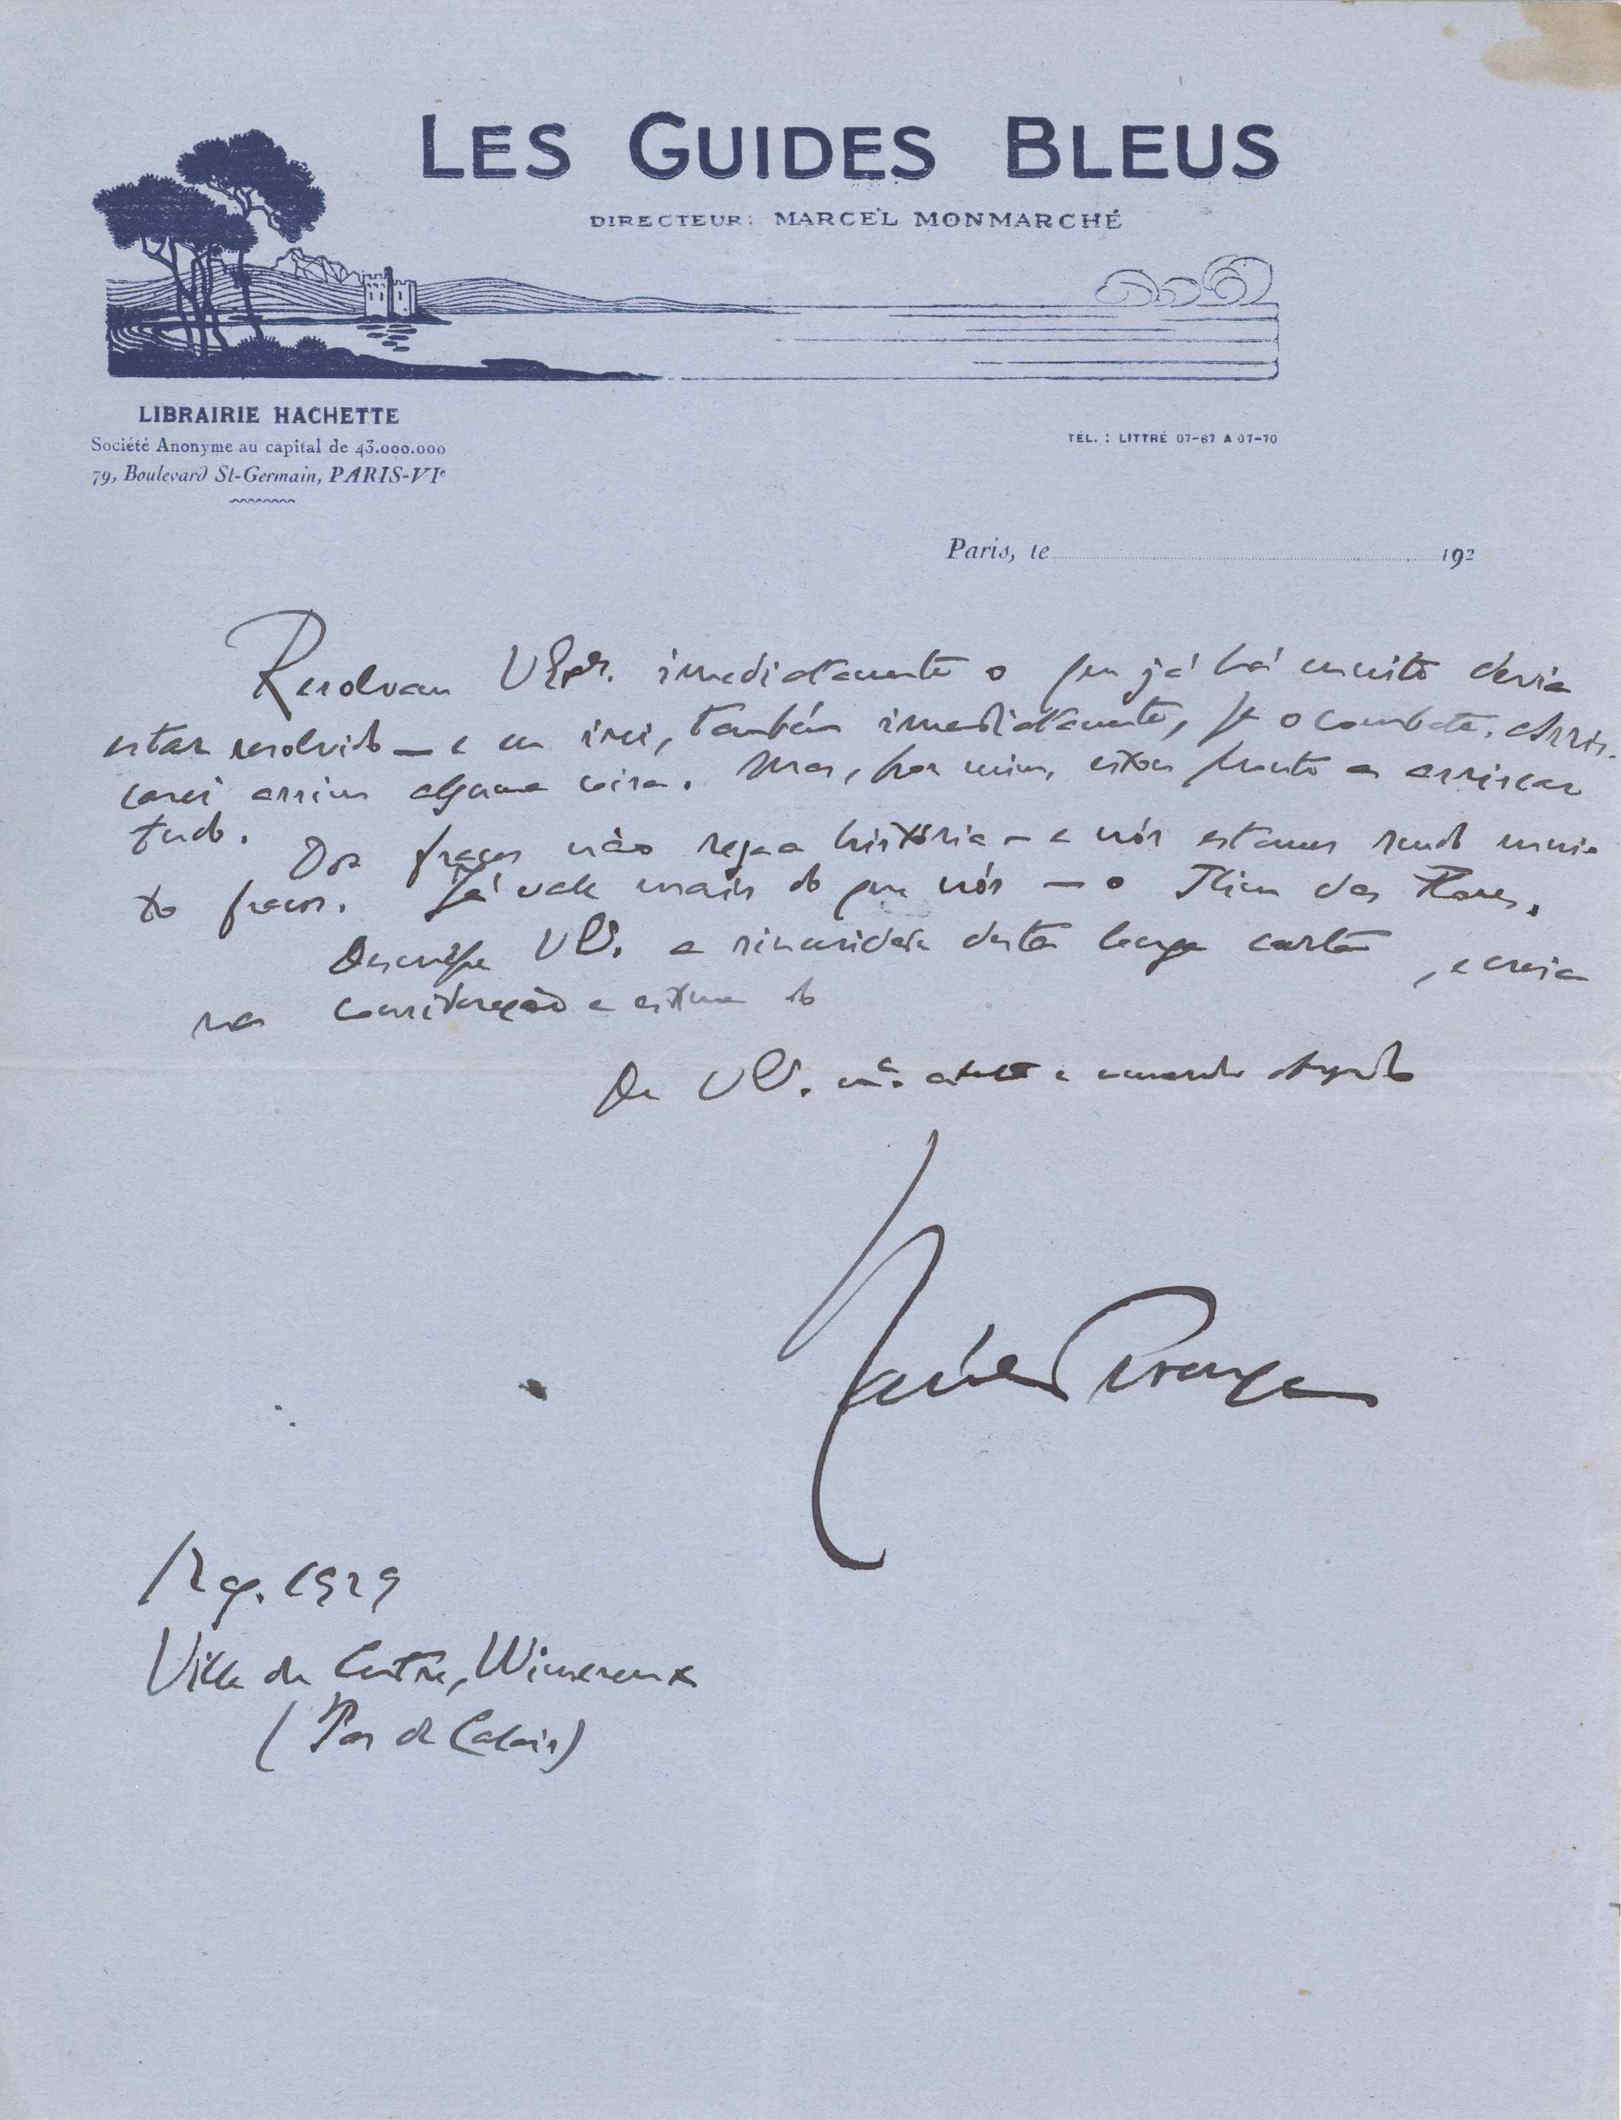 LES GUIDES BLEUS
DIRECTEUR: MARCEL MONMARCHÉ
LIBRAIRIE HACHETTE
Société Anonyme au capital de 43.000.000
79, Boulevard St-Germain, PARIS-VIe
TÉL. : LITTRÉ 07-67 A 07-70
Paris, le 192
Resolvam VExas. imediatamente o que já há muito devia
estar resolvido — e eu irei, também imediatamente, p.a o combate. Arris-
carei assim alguma coisa. Mas, por mim, estou pronto a arriscar
tudo. Dos fracos não reza a história — e nós estamos sendo mui-
to fracos. Já vale mais do que nós — o Flores.
Desculpe VEx. a sinceridade desta longa carta, e creia
na consideração e estima do
De VEx. e obrigado
12 Ag. 1929
Villa du Centre, Wimereux
(Pas de Calais)